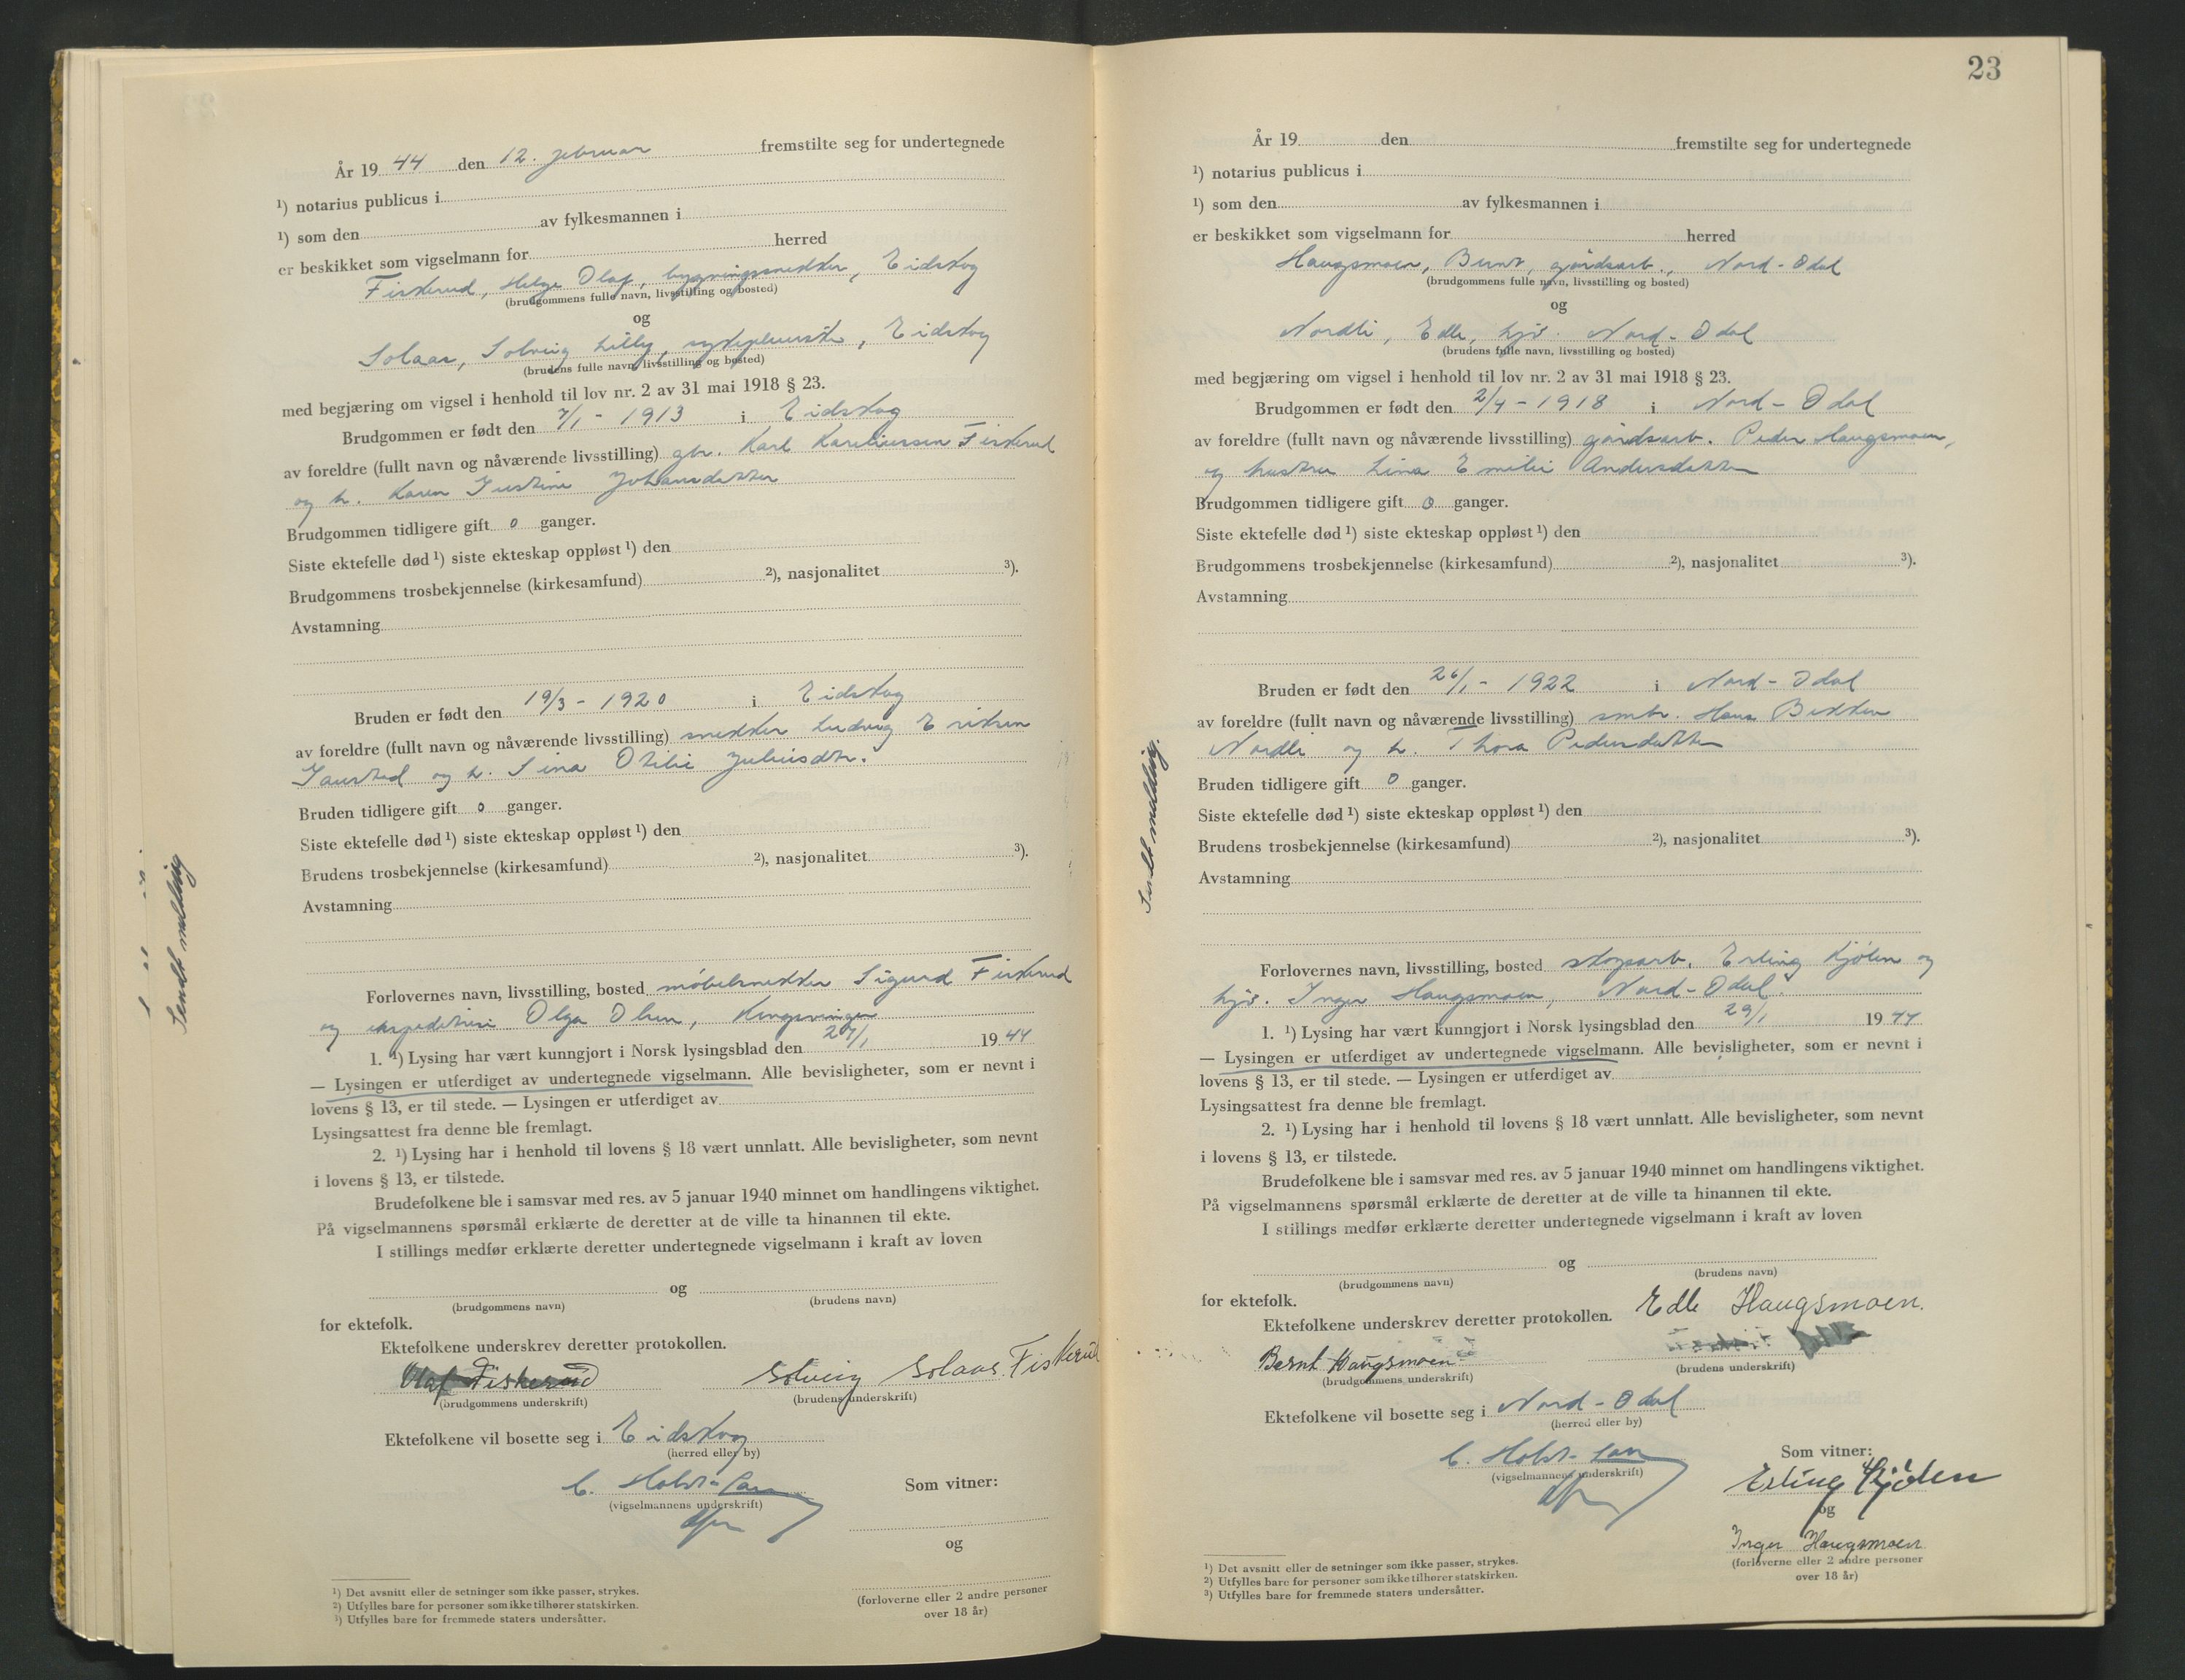 År 19 44 den 12. februar fremstilte seg for undertegnede
¹) notarius publicus i
¹) som den av fylkesmannen i
er beskikket som vigselmann for herred
Fiskerud, Helge Olaf, bygningssnekker, Eidskog
(brudgommens fulle navn, livsstilling og bosted)
og
Solaas, Solveig Lilly, sykepleierske, Eidskog
(brudens fulle navn, livsstilling og bosted)
med begjæring om vigsel i henhold til lov nr. 2 av 31 mai 1918 § 23.
Brudgommen er født den 7/1 - 1913 i Eidskog
av foreldre (fullt navn og nåværende livsstilling) gbr. Karl Kareliussen Fiskerud
og h. Karen Justine Johansdatter
Brudgommen tidligere gift 0 ganger.
Siste ektefelle død ¹) siste ekteskap oppløst ¹) den
Brudgommens trosbekjennelse (kirkesamfund) ²), nasjonalitet ³).
Avstamning
Bruden er født den 19/3 - 1920 i Eidskog
av foreldre (fullt navn og nåværende livsstilling) snekker Ludvig Eriksen
og h. Sina Otilie Juliusdtr.
Bruden tidligere gift 0 ganger.
Siste ektefelle død ¹) siste ekteskap oppløst ¹) den
Brudens trosbekjennelse (kirkesamfund) ²), nasjonalitet ³).
Avstamning
Forlovernes navn, livsstilling, bosted møbelsnekker Sigurd Fiskerud
og ekspeditrise Olga Olsen, Kongsvinger
1. ¹) Lysing har vært kunngjort i Norsk lysingsblad den 1944
— Lysingen er utferdiget av undertegnede vigselmann. Alle bevisligheter, som er nevnt i
lovens § 13, er til stede. — Lysingen er utferdiget av
Lysingsattest fra denne ble fremlagt.
2. ¹) Lysing har i henhold til lovens § 18 vært unnlatt. Alle bevisligheter, som nevnt
i lovens § 13, er tilstede.
Brudefolkene ble i samsvar med res. av 5 januar 1940 minnet om handlingens viktighet.
På vigselmannens spørsmål erklærte de deretter at de ville ta hinannen til ekte.
I stillings medfør erklærte deretter undertegnede vigselmann i kraft av loven
og
(brudgommens navn) (brudens navn)
for ektefolk.
Ektefolkene underskrev deretter protokollen.
Olaf Fiskerud Solveig Solaas Fiskerud
(brudgommens underskrift) (brudens underskrift)
Ektefolkene vil bosette seg i Eidskog
(herred eller by)
C. Holst-
(vigselmannens underskrift)
Som vitner:
og
(forloverne eller 2 andre personer
over 18 år)
¹) Det avsnitt eller de setninger som ikke passer, strykes.
²) Utfylles bare for personer som ikke tilhører statskirken.
³) Utfylles bare for fremmede staters undersåtter.
Sendt melding
23
År 19 den fremstilte seg for undertegnede
¹) notarius publicus i
¹) som den av fylkesmannen i
er beskikket som vigselmann for herred
Haugsmoen, Bernt, gårdsarb., Nord-Odal
(brudgommens fulle navn, livsstilling og bosted)
og
Nordli, Edle, hjv. Nord-Odal
(brudens fulle navn, livsstilling og bosted)
med begjæring om vigsel i henhold til lov nr. 2 av 31 mai 1918 § 23.
Brudgommen er født den 2/4 - 1918 i Nord-Odal
av foreldre (fullt navn og nåværende livsstilling) gårdsarb. Peder Haugsmoen,
og hustru Lina Emilie Andersdatter
Brudgommen tidligere gift 0 ganger.
Siste ektefelle død ¹) siste ekteskap oppløst ¹) den
Brudgommens trosbekjennelse (kirkesamfund) ²), nasjonalitet ³).
Avstamning
Bruden er født den 26/1 - 1922 i Nord-Odal
av foreldre (fullt navn og nåværende livsstilling) smbr. Hans
Nordli og h. Thora Pedersdatter
Bruden tidligere gift 0 ganger.
Siste ektefelle død ¹) siste ekteskap oppløst ¹) den
Brudens trosbekjennelse (kirkesamfund) ²), nasjonalitet ³).
Avstamning
Forlovernes navn, livsstilling, bosted skogsarb. Erling Kjølen og
hjv. Inger Haugsmoen, Nord-Odal.
1. ¹) Lysing har vært kunngjort i Norsk lysingsblad den 29/1 1944
— Lysingen er utferdiget av undertegnede vigselmann. Alle bevisligheter, som er nevnt i
lovens § 13, er til stede. — Lysingen er utferdiget av
Lysingsattest fra denne ble fremlagt.
2. ¹) Lysing har i henhold til lovens § 18 vært unnlatt. Alle bevisligheter, som nevnt
i lovens § 13, er tilstede.
Brudefolkene ble i samsvar med res. av 5 januar 1940 minnet om handlingens viktighet.
På vigselmannens spørsmål erklærte de deretter at de ville ta hinannen til ekte.
I stillings medfør erklærte deretter undertegnede vigselmann i kraft av loven
og
(brudgommens navn) (brudens navn)
for ektefolk.
Ektefolkene underskrev deretter protokollen. Edle Haugsmoen.
Bernt Haugsmoen
(brudgommens underskrift) (brudens underskrift)
Ektefolkene vil bosette seg i Nord-Odal
(herred eller by)
C. Holst-
(vigselmannens underskrift)
Som vitner:
Erling Kjølen
og
Inger Haugsmoen
(forloverne eller 2 andre personer
over 18 år)
¹) Det avsnitt eller de setninger som ikke passer, strykes.
²) Utfylles bare for personer som ikke tilhører statskirken.
³) Utfylles bare for fremmede staters undersåtter.
Sendt melding.